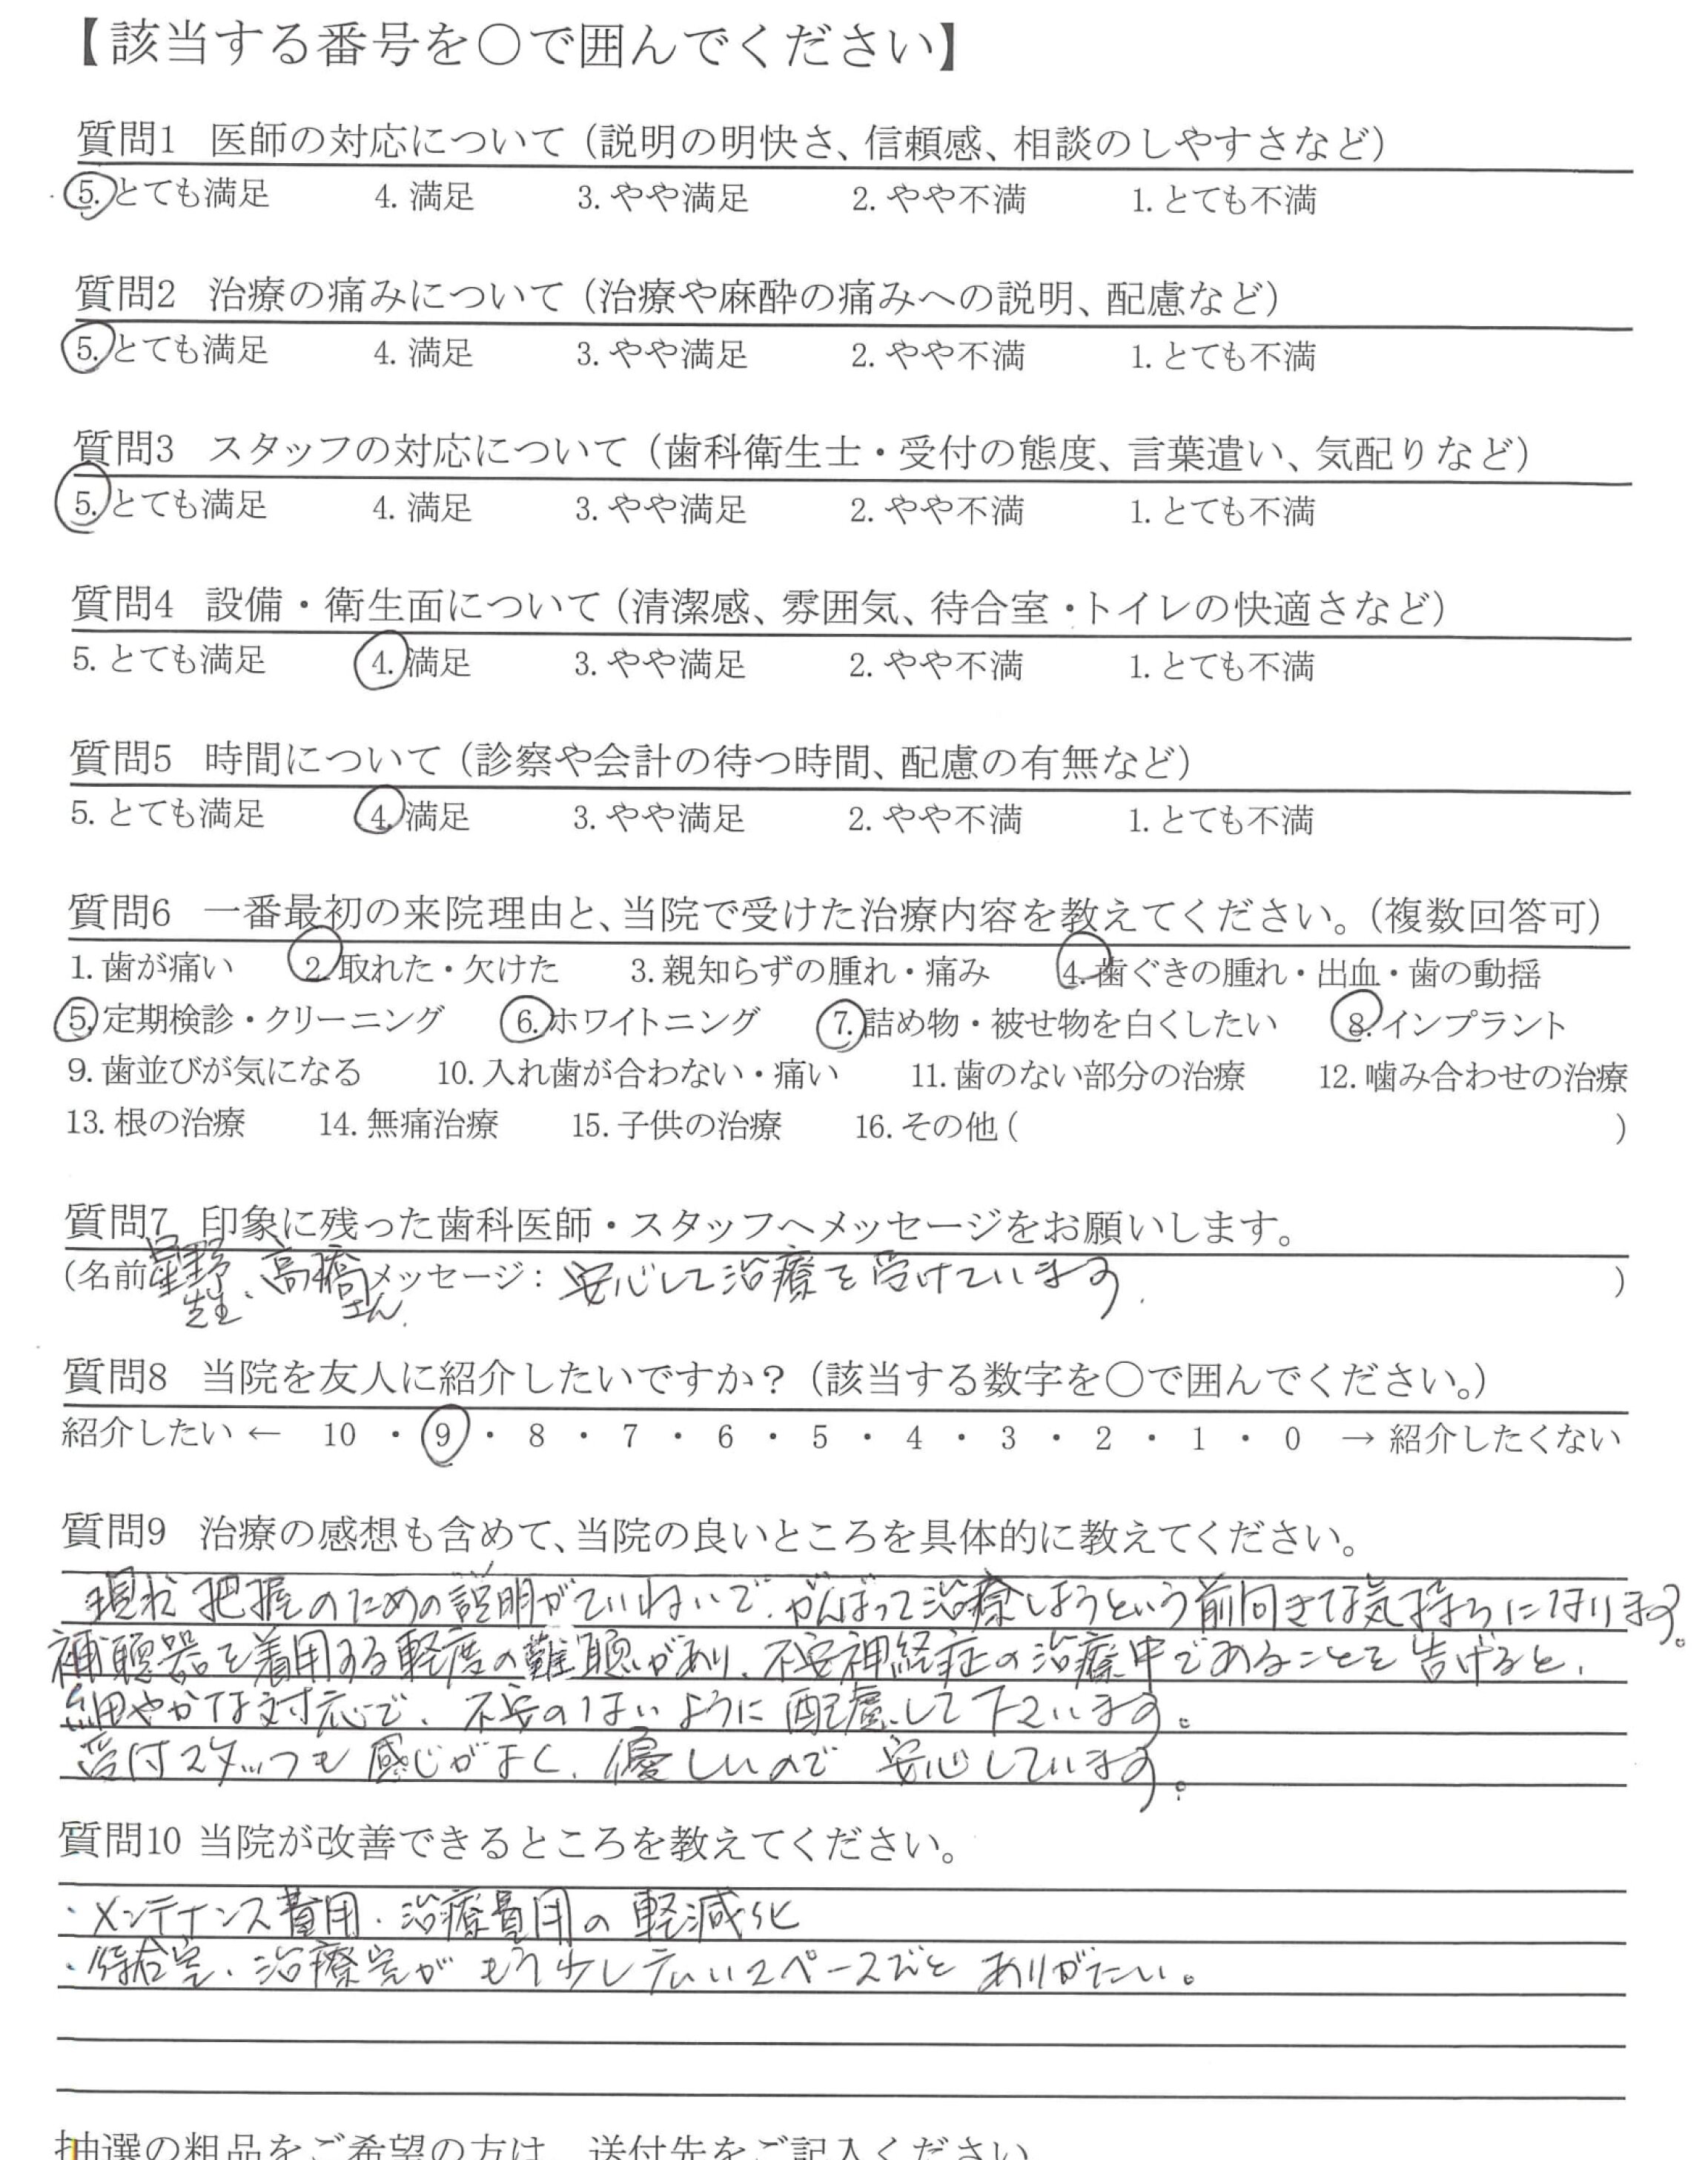 【該当する番号を○で囲んでください】
質問1 医師の対応について（説明の明快さ、信頼感、相談のしやすさなど）
5. とても満足 4. 満足 3. やや満足 2. やや不満 1. とても不満
質問2 治療の痛みについて（治療や麻酔の痛みへの説明、配慮など）
5. とても満足 4. 満足 3. やや満足 2. やや不満 1. とても不満
質問3 スタッフの対応について（歯科衛生士・受付の態度、言葉遣い、気配りなど）
5. とても満足 4. 満足 3. やや満足 2. やや不満 1. とても不満
質問4 設備・衛生面について（清潔感、雰囲気、待合室・トイレの快適さなど）
5. とても満足 4. 満足 3. やや満足 2. やや不満 1. とても不満
質問5 時間について（診察や会計の待つ時間、配慮の有無など）
5. とても満足 4. 満足 3. やや満足 2. やや不満 1. とても不満
質問6 一番最初の来院理由と、当院で受けた治療内容を教えてください。（複数回答可）
1. 歯が痛い 2. 取れた・欠けた 3. 親知らずの腫れ・痛み 4. 歯ぐきの腫れ・出血・歯の動揺
5. 定期検診・クリーニング 6. ホワイトニング 7. 詰め物・被せ物を白くしたい 8. インプラント
9. 歯並びが気になる 10. 入れ歯が合わない・痛い 11. 歯のない部分の治療 12. 噛み合わせの治療
13. 根の治療 14. 無痛治療 15. 子供の治療 16. その他（ ）
質問7 印象に残った歯科医師・スタッフへメッセージをお願いします。
（名前 星野先生、高橋さん. メッセージ： 安心して治療を受けています. ）
質問8 当院を友人に紹介したいですか？（該当する数字を○で囲んでください。）
紹介したい ← 10 ・ 9 ・ 8 ・ 7 ・ 6 ・ 5 ・ 4 ・ 3 ・ 2 ・ 1 ・ 0 → 紹介したくない
質問9 治療の感想も含めて、当院の良いところを具体的に教えてください。
現状把握のための説明がていねいで、がんばって治療しようという前向きな気持ちになります。
補聴器を着用する軽度の難聴があり、不安神経症の治療中であることを告げると、
細やかな対応で、不安のないように配慮して下さいます。
受付スタッフも感じがよく、優しいので 安心しています。
質問10 当院が改善できるところを教えてください。
・メンテナンス費用・治療費用の軽減化
・待合室・治療室がもう少し広いスペースだと ありがたい。
抽選の粗品をご希望の方は、送付先をご記入ください